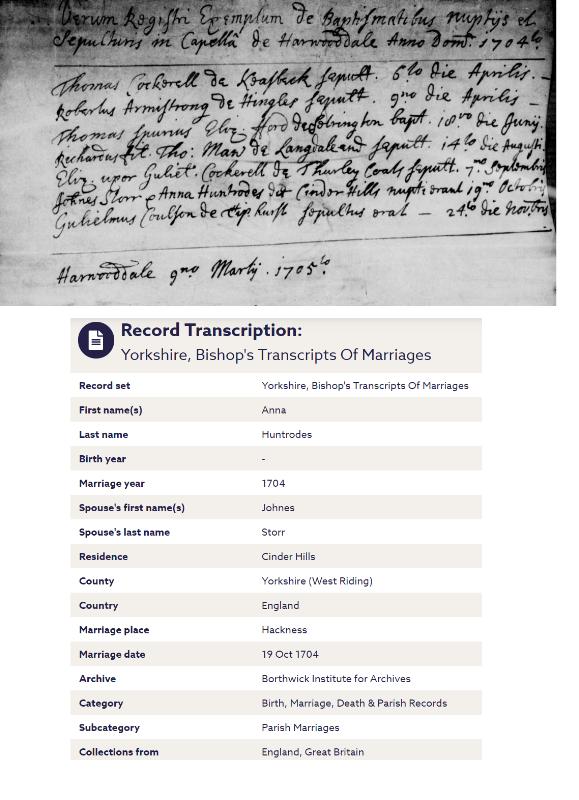 Verum Registri Exemplum de Baptismatibus nuptijs et
Sepulturis in Capella de Harwooddale Anno Dom: 1704to
Thomas Cockerell de Keasbeck sepult. 6to die Aprilis. –
Robertus Armistrong de Hingles sepult. 9no die Aprilis –
Thomas spurius Eliz: ford de bapt. 18vo die Junij.
Richardus fil. Tho: Man de Langdaleand sepult. 14to die Augusti.
Eliz. uxor Guliel. Cockerell de Thurley Coats sepult. 7mo Septembris
Johnes Storr & Anna Huntrodes de Cinder Hills nupti erant 19no Octobris
Gulielmus Coulson de sepultus erat — 24to die Novbris
Harwooddale 9no Martij. 1705to
Record Transcription:
Yorkshire, Bishop's Transcripts Of Marriages
Record set Yorkshire, Bishop's Transcripts Of Marriages
First name(s) Anna
Last name Huntrodes
Birth year -
Marriage year 1704
Spouse's first name(s) Johnes
Spouse's last name Storr
Residence Cinder Hills
County Yorkshire (West Riding)
Country England
Marriage place Hackness
Marriage date 19 Oct 1704
Archive Borthwick Institute for Archives
Category Birth, Marriage, Death & Parish Records
Subcategory Parish Marriages
Collections from England, Great Britain